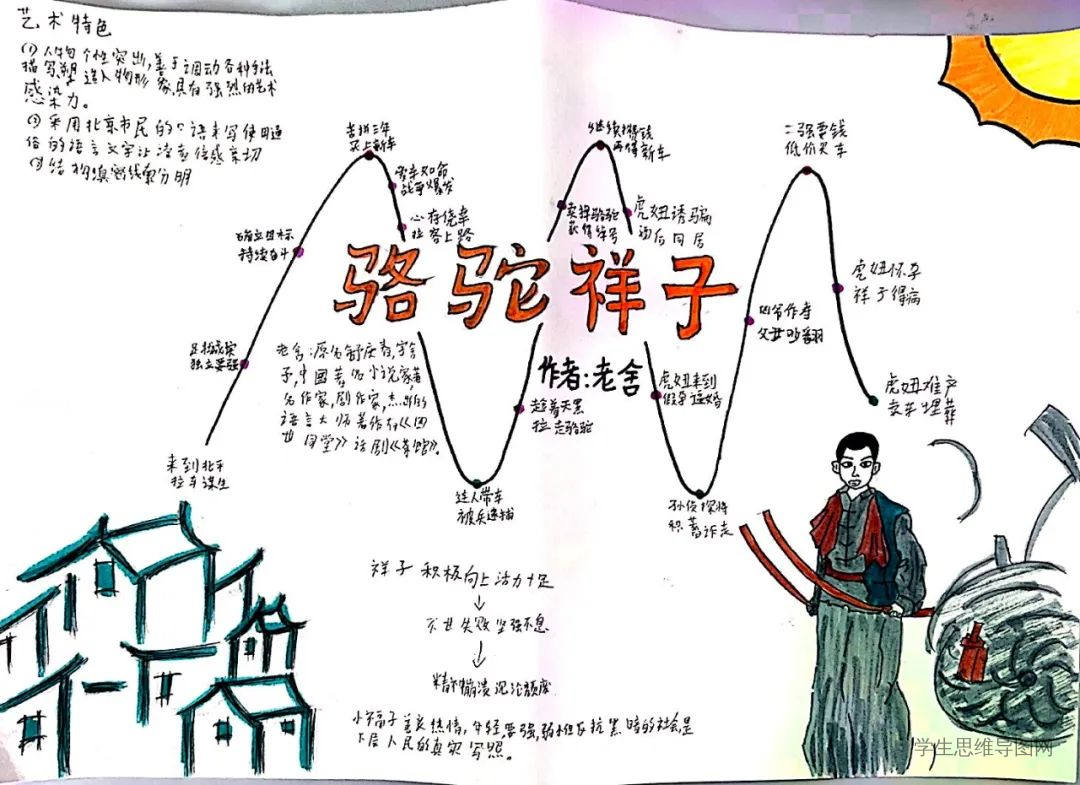 艺术特色
(1)人物个性突出,善于调动各种手法
描写塑造人物形象,具有强烈的艺术
感染力。
(2)采用北京市民的口语来写使用通
俗的语言文字让读者倍感亲切
(3)结构 线索分明
来到北平
拉车谋生
老实
独立要强
确立目标
持续奋斗
苦拼三年
买上新车
爱车如命
战争爆发
心存侥幸
拉客上路
骆驼祥子
作者:老舍
老舍:原名舒庆春,字舍
予,中国著名小说家,著
名作家,剧作家,杰出的
语言大师著作有《四
世同堂》话剧《茶馆》。
连人带车
被兵逮捕
趁着天黑
拉走骆驼
卖掉骆驼
获得绰号
继续攒钱
再得新车
虎妞诱骗
酒后同居
虎妞来到
假孕逼婚
孙侦探将
积蓄诈走
凶名作寿
父女吵翻
二强要钱
低价买车
虎妞怀孕
祥子得病
虎妞难产
卖车埋葬
祥子 积极向上活力十足
↓
不甘失败 坚强不息
↓
精神崩溃 沉沦颓废
小福子善良热情,年轻要强,弱 抗黑暗的社会,是
下层人民的真实写照。
学生思维导图网